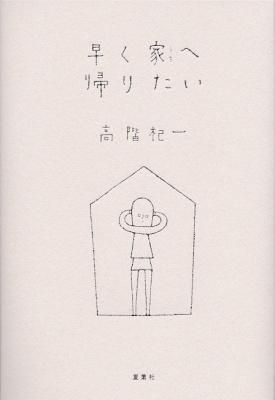 早く家へ
うち
帰りたい
高階杞一
夏葉社